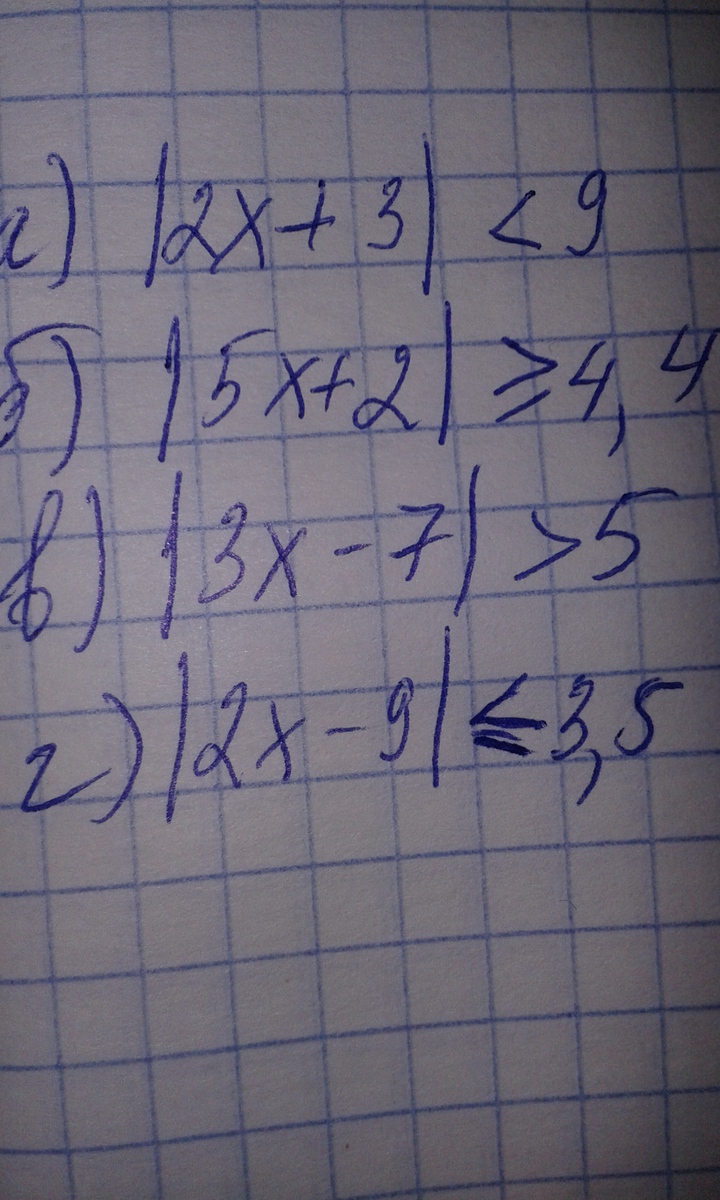 а) |2x + 3| < 9
б) |5x + 2| ≥ 4,4
в) |3x - 7| > 5
г) |2x - 9| ≤ 3,5